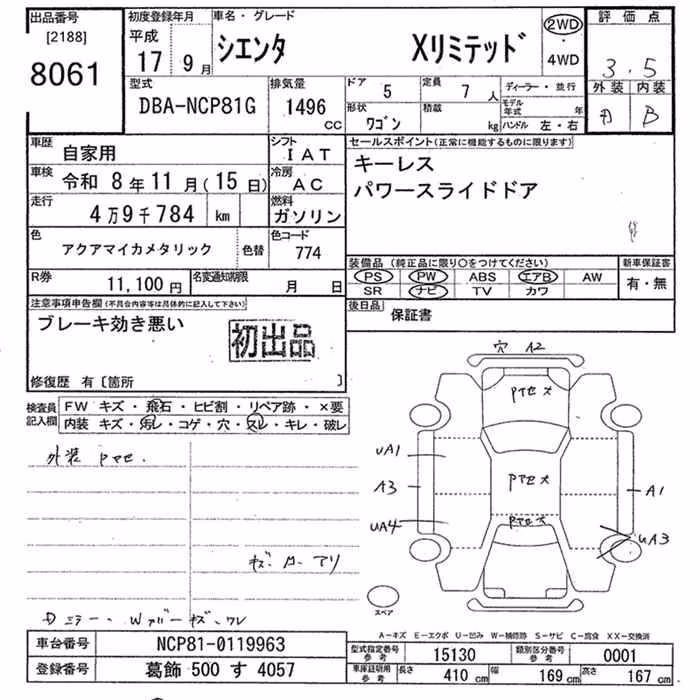 出品番号
[2188]
8061
初度登録年月
平成
17 9月
車名・グレード
シエンタ Xリミテッド
2WD
・
4WD
評価点
3.5
外装 内装
B
型式
DBA-NCP81G
排気量
1496
CC
ドア
5
定員
7 人
ディーラー・並行
モデル年式 年
形状
ワゴン
積載
kg
ハンドル 左・右
車歴
自家用
シフト
IAT
車検
令和 8年11月(15日)
冷房
AC
走行
4万9千784 km
燃料
ガソリン
色
アクアマイカメタリック
色替
色コード
774
R券
11,100円
名変通知期限
月 日
セールスポイント(正常に機能するものに限ります)
キーレス
パワースライドドア
装備品 (純正品に限り○をつけてください)
PS PW ABS エアB AW
SR ナビ TV カワ
新車保証書
有・無
後日品
保証書
注意事項申告欄(不具合内容等は具体的に記入して下さい)
ブレーキ効き悪い
初出品
修復歴 有〔箇所 〕
検査員記入欄
FW キズ・飛石・ヒビ割・リペア跡・×要
内装 キズ・汚レ・コゲ・穴・スレ・キレ・破レ
外装 Pマセ.
キズ・ナリ
Dミラー・Wドバーキズ・ワレ
穴 A2
Pマセメ
UA1
A3
UA4
Pマセメ
Pマセメ
A1
UA3
スペア
A-キズ E-エクボ U-凹み W-補修跡 S-サビ C-腐食 XX-交換済
車台番号
NCP81-0119963
登録番号
葛飾 500 す 4057
型式指定番号 参考
15130
類別区分番号 参考
0001
車庫証明用 参考
長さ 410 cm
幅 169 cm
高さ 167 cm